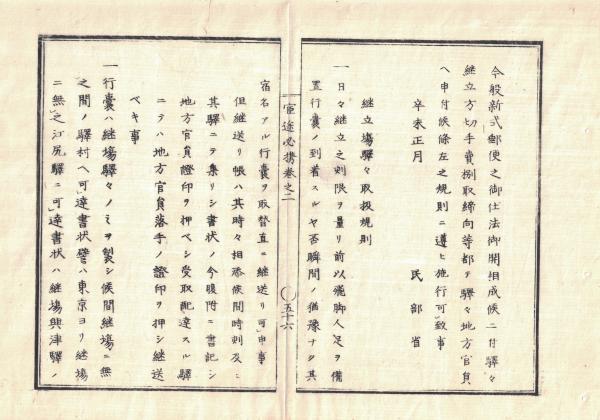 今般新式郵便之御仕法御開相成候ニ付驛々
継立方切手賣捌取締向等都テ驛々地方官員
ヘ申付候條左之規則ニ遵ヒ施行可致事
辛未正月　民部省
継立塲驛々取扱規則
一日々継立之刻限ヲ量リ前以飛脚人足ヲ備
置行嚢ノ到着スルヤ否瞬間ノ猶豫ナク其
官途必携巻之二
〇五十六
宿名アル行嚢ヲ取替直ニ継送リ可申事
但継送リ帳ハ其時々相添候間時刻及ヒ
其驛ニテ集リシ書状ノ今度附ニ書記シ
地方官員證印ヲ押ベシ受取配達スル驛
ニテハ地方官員落手ノ證印ヲ押シ継送
ベキ事
一行嚢ハ継塲驛々ノミヲ製シ候間継塲ニ無
之間ノ驛村ヘ可達書状譬ハ東京ヨリ継塲
ニ無之江尻驛ニ可達書状ハ継塲興津驛ノ